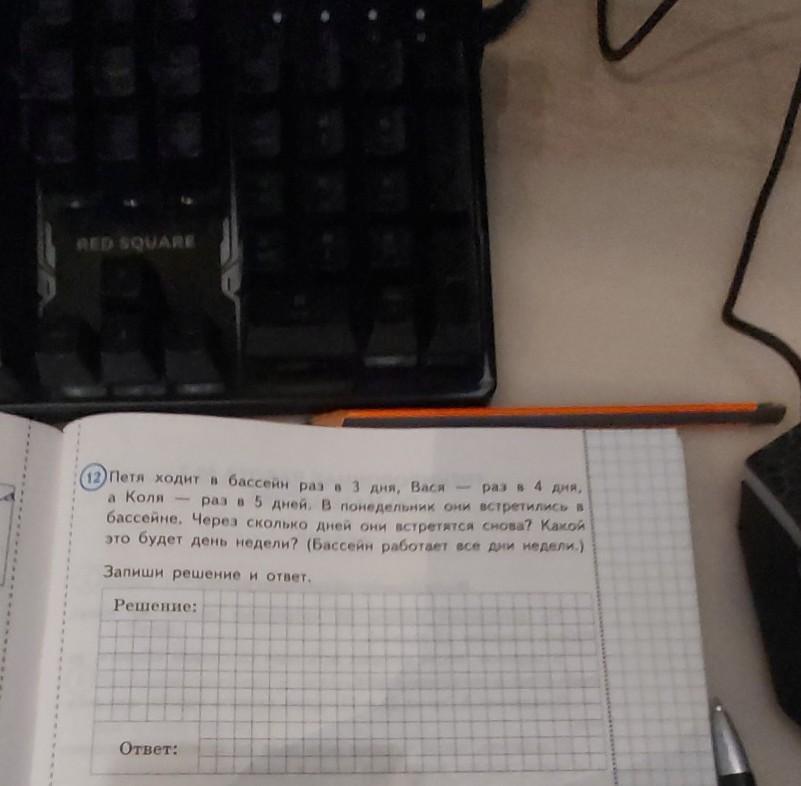 RED SQUARE
12 Петя ходит в бассейн раз в 3 дня, Вася — раз в 4 дня,
а Коля — раз в 5 дней. В понедельник они встретились в
бассейне. Через сколько дней они встретятся снова? Какой
это будет день недели? (Бассейн работает все дни недели.)
Запиши решение и ответ.
Решение:
Ответ: